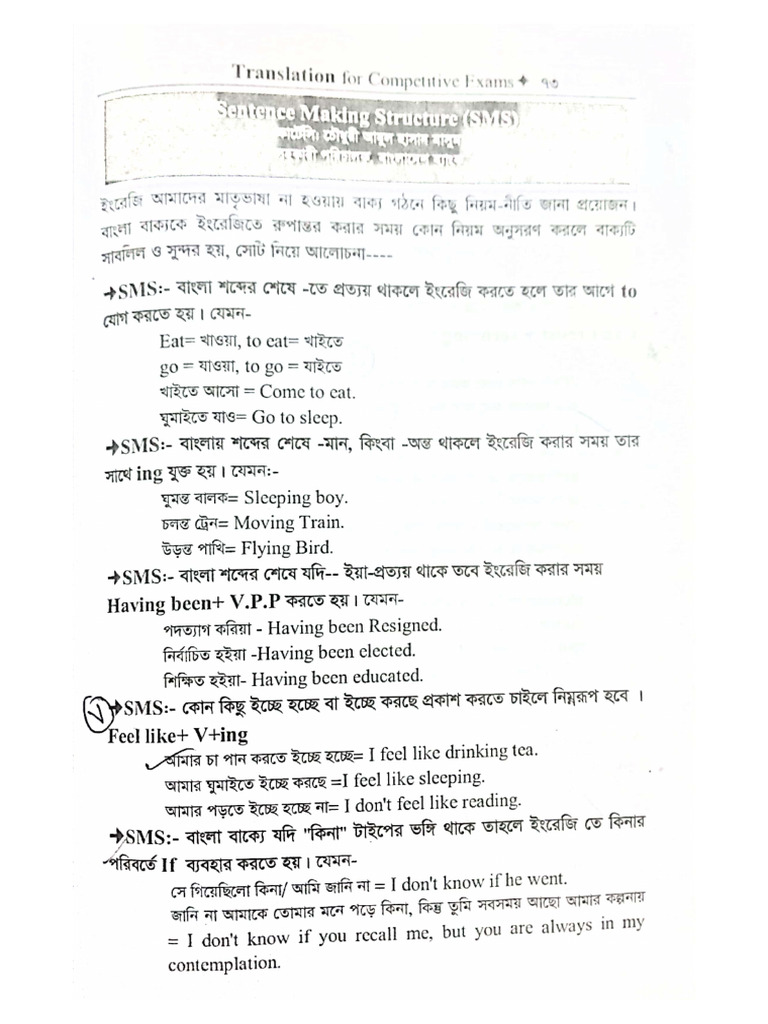 Translation for Competitive Exams ✦ ৭৩
Sentence Making Structure (SMS)
ইংরেজি আমাদের মাতৃভাষা না হওয়ায় বাক্য গঠনে কিছু নিয়ম-নীতি জানা প্রয়োজন।
বাংলা বাক্যকে ইংরেজিতে রুপান্তর করার সময় কোন নিয়ম অনুসরণ করলে বাক্যটি
সাবলিল ও সুন্দর হয়, সেটি নিয়ে আলোচনা----
➔SMS:- বাংলা শব্দের শেষে -তে প্রত্যয় থাকলে ইংরেজি করতে হলে তার আগে to
যোগ করতে হয়। যেমন-
Eat= খাওয়া, to eat= খাইতে
go = যাওয়া, to go = যাইতে
খাইতে আসো = Come to eat.
ঘুমাইতে যাও= Go to sleep.
➔SMS:- বাংলায় শব্দের শেষে -মান, কিংবা -অন্ত থাকলে ইংরেজি করার সময় তার
সাথে ing যুক্ত হয়। যেমন:-
ঘুমন্ত বালক= Sleeping boy.
চলন্ত ট্রেন= Moving Train.
উড়ন্ত পাখি= Flying Bird.
➔SMS:- বাংলা শব্দের শেষে যদি-- ইয়া-প্রত্যয় থাকে তবে ইংরেজি করার সময়
Having been+ V.P.P করতে হয়। যেমন-
পদত্যাগ করিয়া - Having been Resigned.
নির্বাচিত হইয়া -Having been elected.
শিক্ষিত হইয়া- Having been educated.
➔SMS:- কোন কিছু ইচ্ছে হচ্ছে বা ইচ্ছে করছে প্রকাশ করতে চাইলে নিম্নরূপ হবে ।
Feel like+ V+ing
আমার চা পান করতে ইচ্ছে হচ্ছে= I feel like drinking tea.
আমার ঘুমাইতে ইচ্ছে করছে =I feel like sleeping.
আমার পড়তে ইচ্ছে হচ্ছে না= I don't feel like reading.
➔SMS:- বাংলা বাক্যে যদি "কিনা" টাইপের ভঙ্গি থাকে তাহলে ইংরেজি তে কিনার
পরিবর্তে If ব্যবহার করতে হয়। যেমন-
সে গিয়েছিলো কিনা/ আমি জানি না = I don't know if he went.
জানি না আমাকে তোমার মনে পড়ে কিনা, কিন্তু তুমি সবসময় আছো আমার কল্পনায়
= I don't know if you recall me, but you are always in my
contemplation.